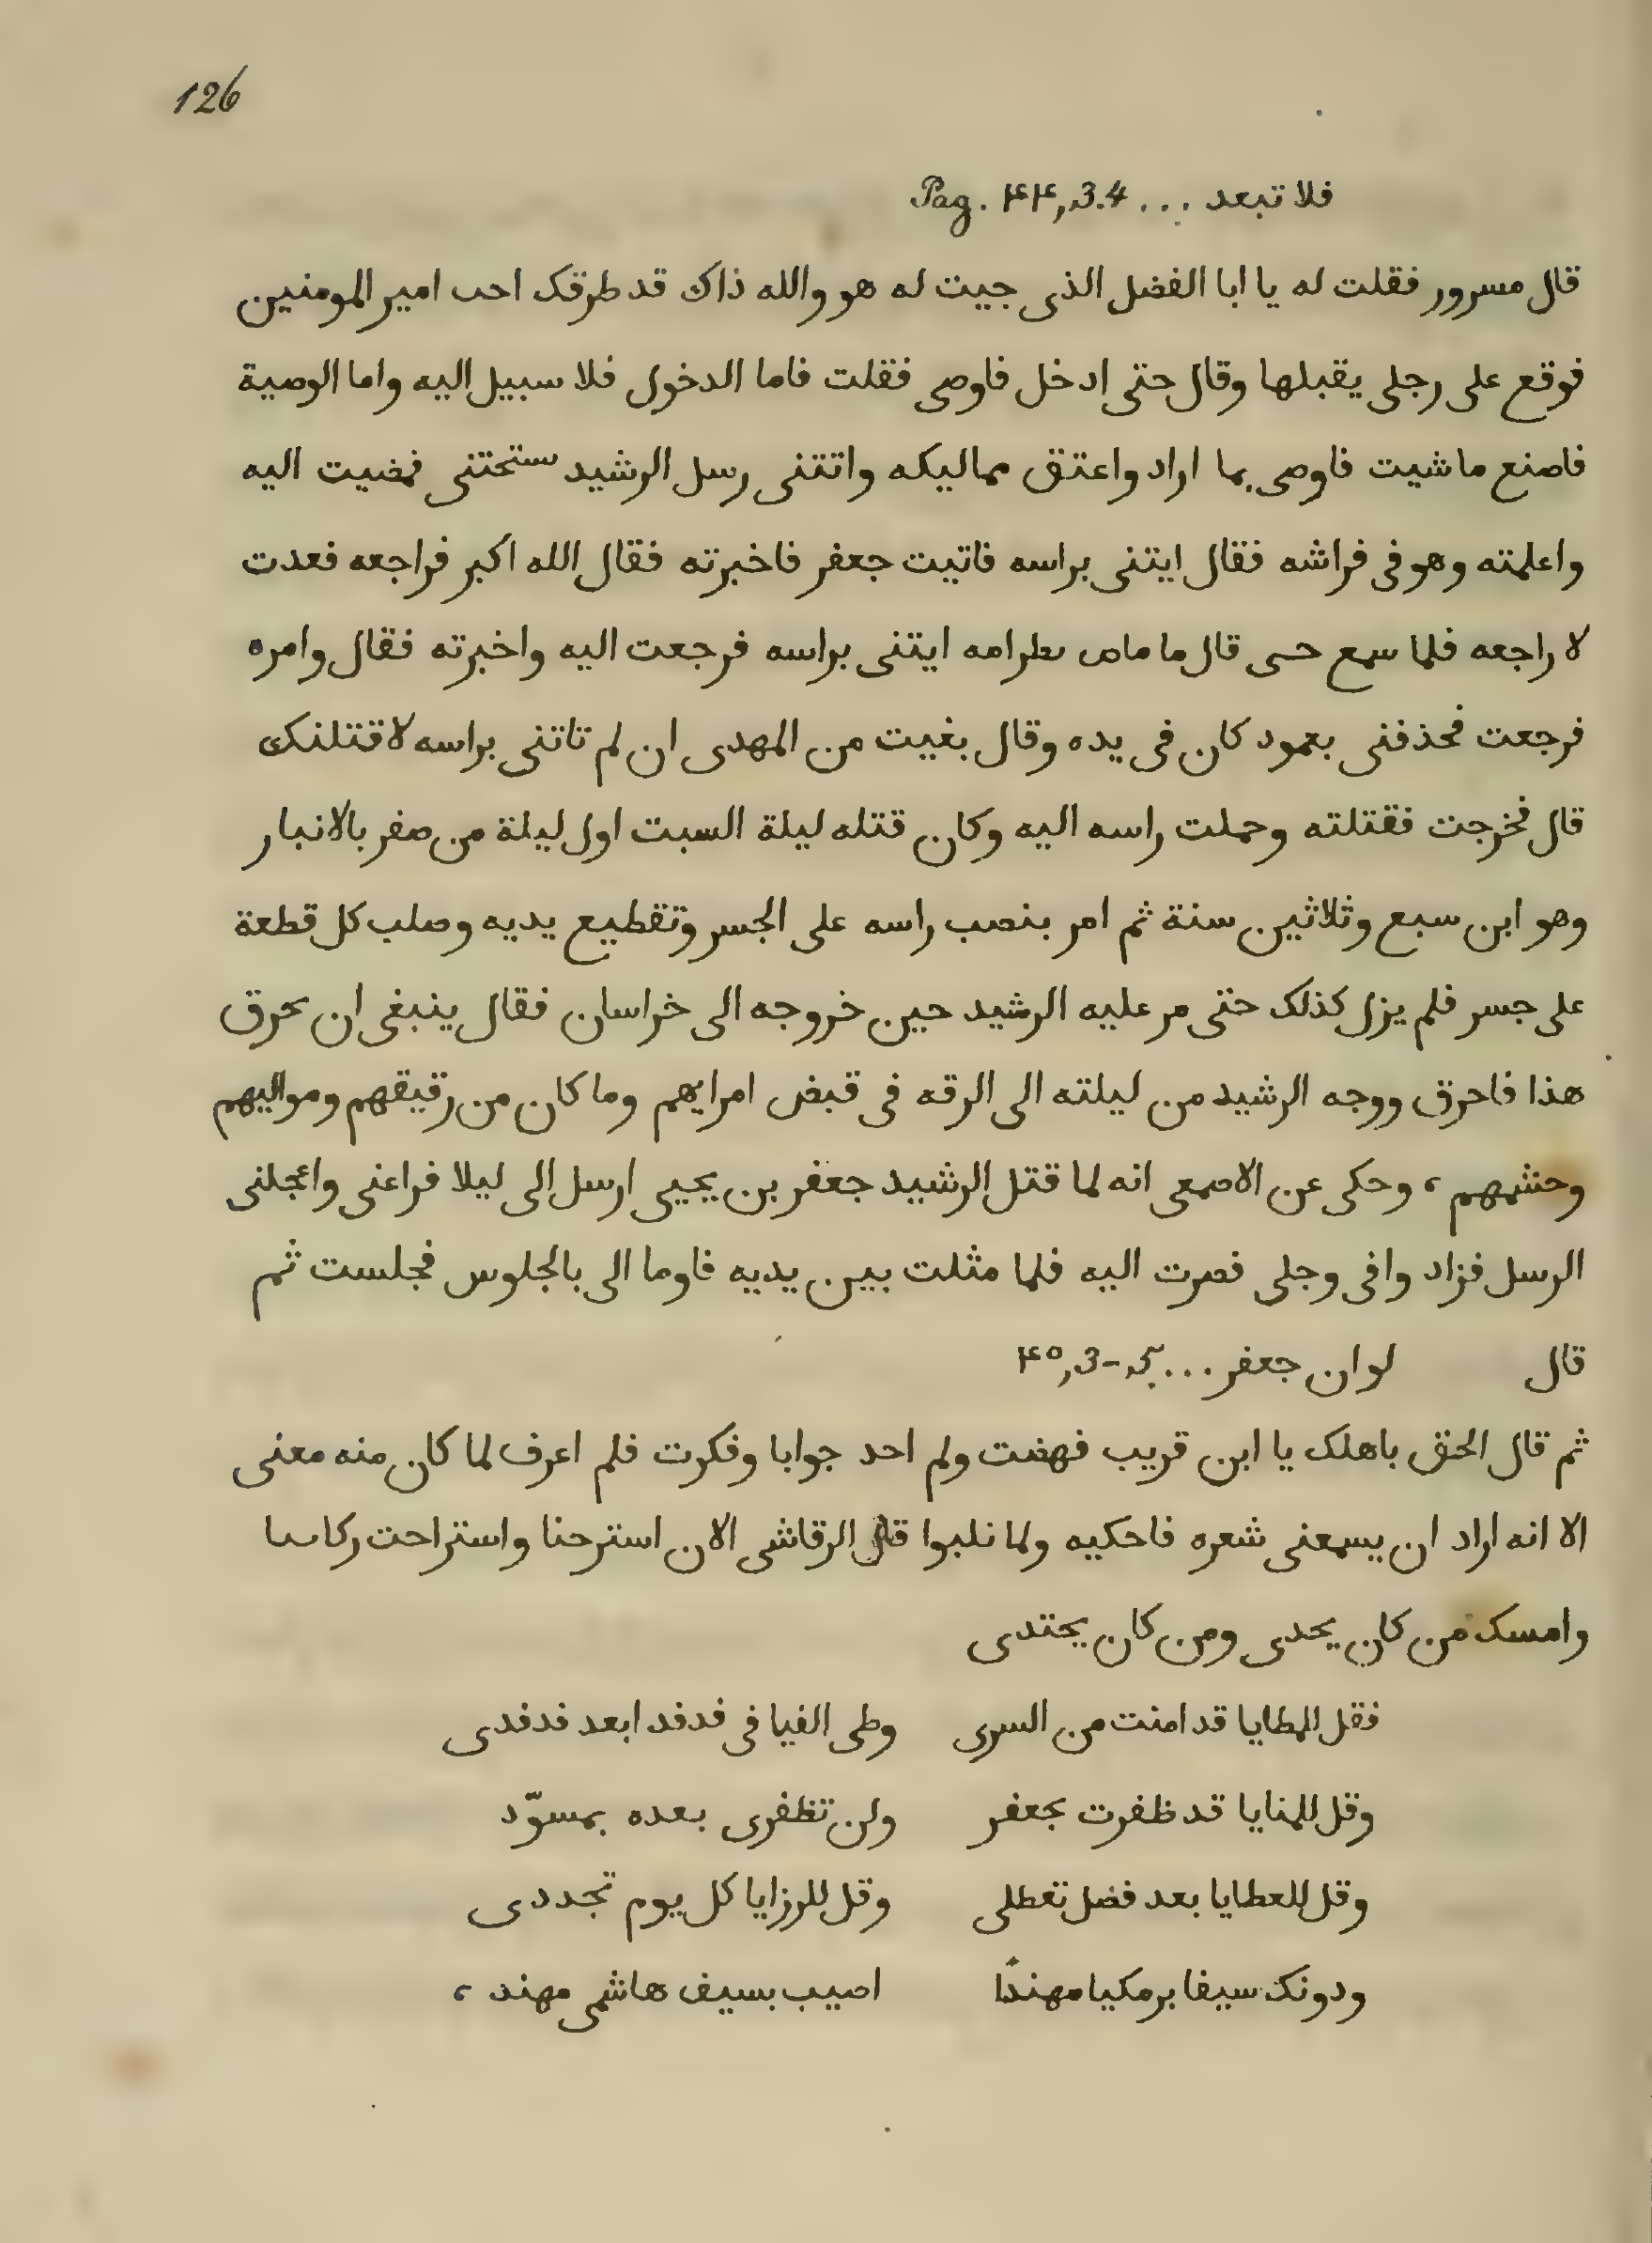 126
فلا تبعد ... Pag. ۴۴, 3.4
قال مسرور فقلت له يا ابا الفضل الذى جيت له هو والله ذاك قد طرقك احب امير المومنين
فوقع على رجلى يقبلها وقال حتى ادخل فاوصى فقلت فاما الدخول فلا سبيل اليه واما الوصية
فاصنع ما شيت فاوصى بما اراد واعتق مماليكه واتتنى رسل الرشيد ستحتنى فمضيت اليه
واعلمته وهو فى فراشه فقال ايتنى براسه فاتيت جعفر فاخبرته فقال الله اكبر فراجعه فعدت
لا راجعه فلما سمع حسى قال ما ماص بطرامه ايتنى براسه فرجعت اليه واخبرته فقال وامره
فرجعت فحذفنى بعمود كان فى يده وقال بغيت من المهدى ان لم تاتنى براسه لاقتلنك
قال فخرجت فقتلته وحملت راسه اليه وكان قتله ليلة السبت اول ليلة من صفر بالانبار
وهو ابن سبع وثلاثين سنة ثم امر بنصب راسه على الجسر وتقطيع يديه وصلب كل قطعة
على جسر فلم يزل كذلك حتى مر عليه الرشيد حين خروجه الى خراسان فقال ينبغى ان يحرق
هذا فاحرق ووجه الرشيد من ليلته الى الرقه فى قبض امرايهم وما كان من رقيقهم ومواليهم
وحشمهم ، وحكى عن الاصمعى انه لما قتل الرشيد جعفر بن يحيى ارسل الى ليلا فراعنى واعجلنى
الرسل فزاد وافى وجلى فصرت اليه فلما مثلت بين يديه فاوما الى بالجلوس فجلست ثم
قال لو ان جعفر ... ۴۵, 3-
ثم قال الحق باهلك يا ابن قريب فهضت ولم احد جوابا وفكرت فلم اعرف لما كان منه معنى
الا انه اراد ان يسمعنى شعره فاحكيه ولما نلبوا قال الرقاشى الان استرحنا واستراحت ركابنا
وامسك من كان يحدى ومن كان يحتدى
فقل للمطايا قد امنت من السرى وطى الفيافى فدفد ابعد فدفدى
وقل للمنايا قد ظفرت بجعفر ولن تظفرى بعده بمسوّد
وقل للعطايا بعد فضل تعطلى وقل للرزايا كل يوم تجددى
ودونك سيفا برمكيا مهندًا اصيب بسيف هاشمى مهند ،